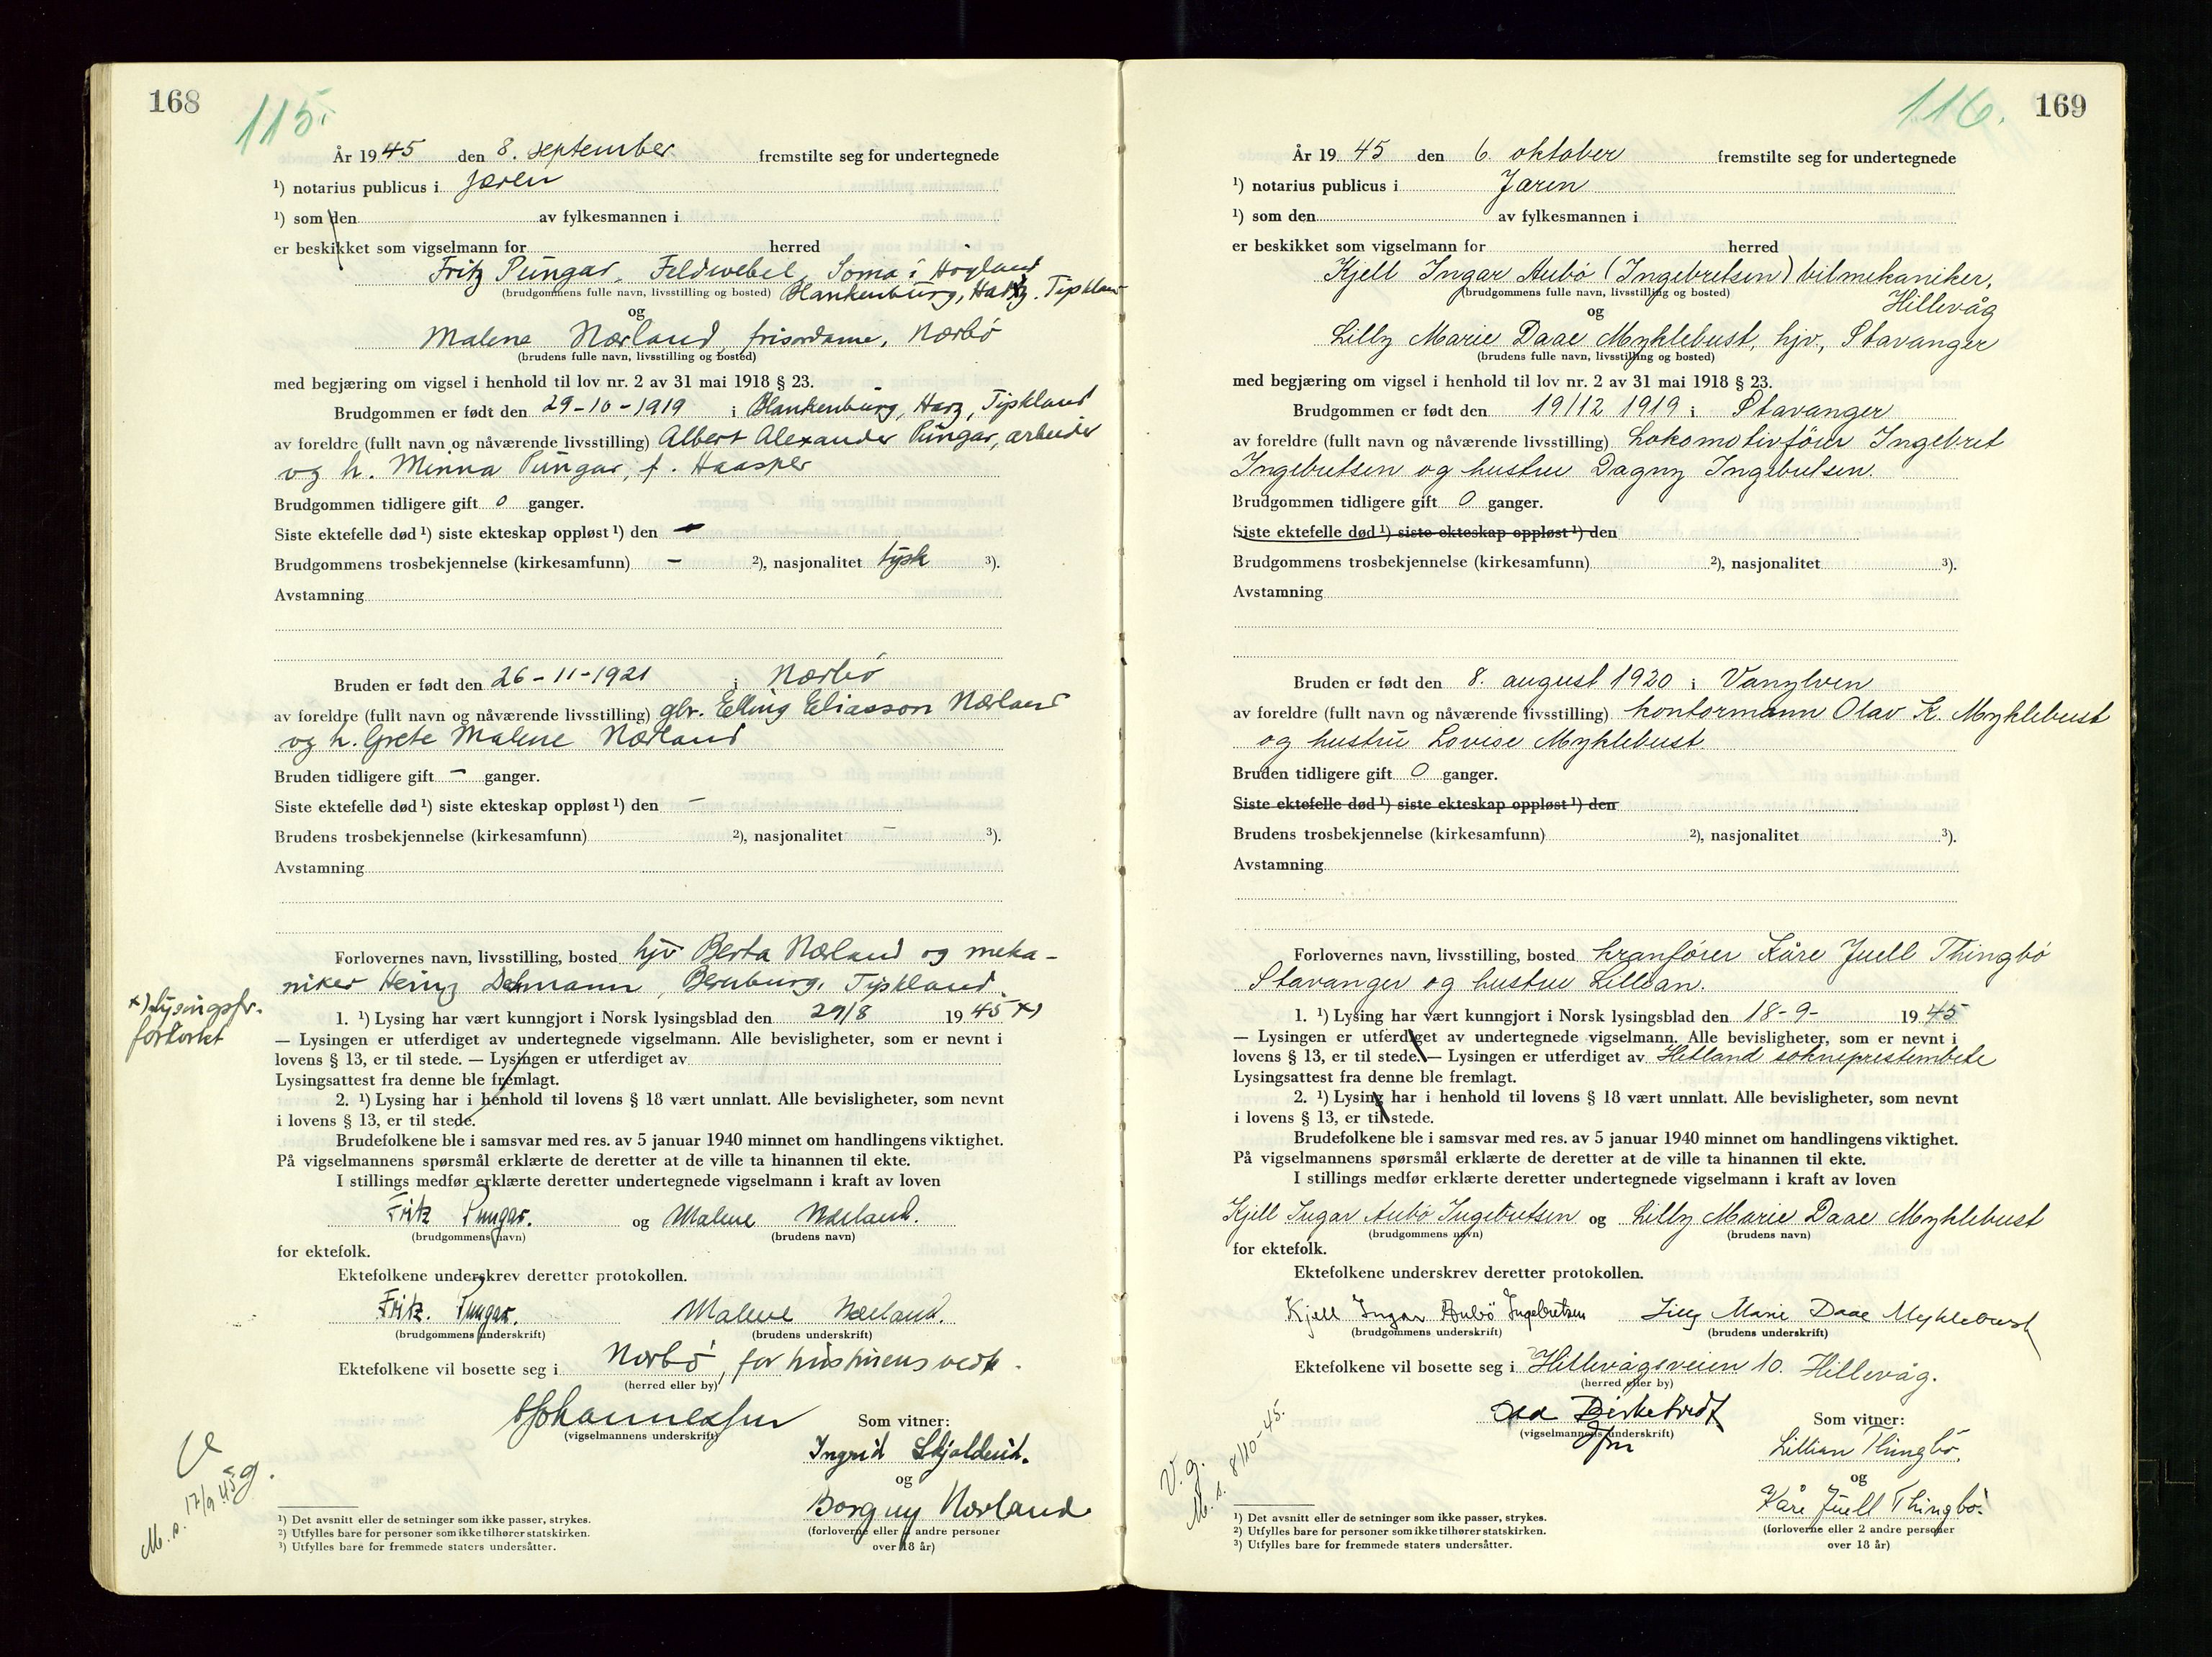 168
115.
År 1945 den 8. september fremstilte seg for undertegnede
¹) notarius publicus i Jæren
¹) som den av fylkesmannen i
er beskikket som vigselmann for herred
Fritz Pungar, Feldwebel, Soma i Høyland
(brudgommens fulle navn, livsstilling og bosted) Blankenburg, Harz. Tyskland
og
Malene Nærland, frisørdame, Nærbö
(brudens fulle navn, livsstilling og bosted)
med begjæring om vigsel i henhold til lov nr. 2 av 31 mai 1918 § 23.
Brudgommen er født den 29-10-1919 i Blankenburg, Harz, Tyskland
av foreldre (fullt navn og nåværende livsstilling) Albert Alexander Pungar, arbeider
og h. Minna Pungar, f. Haasper
Brudgommen tidligere gift 0 ganger.
Siste ektefelle død ¹) siste ekteskap oppløst ¹) den -
Brudgommens trosbekjennelse (kirkesamfunn) - ²), nasjonalitet tysk ³).
Avstamning
Bruden er født den 26-11-1921 i Nærbö
av foreldre (fullt navn og nåværende livsstilling) gbr. Elling Eliasson Nærland
og h. Grete Malene Nærland
Bruden tidligere gift - ganger.
Siste ektefelle død ¹) siste ekteskap oppløst ¹) den -
Brudens trosbekjennelse (kirkesamfunn) ²), nasjonalitet - ³).
Avstamning
Forlovernes navn, livsstilling, bosted hjv Berta Nærland og meka-
niker Heinz Dehmann, Bernburg, Tyskland.
x) lysingsfr. forkortet
1. ¹) Lysing har vært kunngjort i Norsk lysingsblad den 29/8 1945 x)
— Lysingen er utferdiget av undertegnede vigselmann. Alle bevisligheter, som er nevnt i
lovens § 13, er til stede. — Lysingen er utferdiget av
Lysingsattest fra denne ble fremlagt.
2. ¹) Lysing har i henhold til lovens § 18 vært unnlatt. Alle bevisligheter, som nevnt
i lovens § 13, er til stede.
Brudefolkene ble i samsvar med res. av 5 januar 1940 minnet om handlingens viktighet.
På vigselmannens spørsmål erklærte de deretter at de ville ta hinannen til ekte.
I stillings medfør erklærte deretter undertegnede vigselmann i kraft av loven
Fritz Pungar. og Malene Nærland.
(brudgommens navn) (brudens navn)
for ektefolk.
Ektefolkene underskrev deretter protokollen.
Fritz. Pungar. Malene Nærland.
(brudgommens underskrift) (brudens underskrift)
Ektefolkene vil bosette seg i Nærbö, for hustruens vedk.
(herred eller by)
Johannessen Som vitner:
(vigselmannens underskrift)
Ingrid
og
Borgny Nærland
(forloverne eller 2 andre personer
over 18 år)
V g.
M. s. 17/9 45
¹) Det avsnitt eller de setninger som ikke passer, strykes.
²) Utfylles bare for personer som ikke tilhører statskirken.
³) Utfylles bare for fremmede staters undersåtter.
169
116.
År 1945 den 6. oktober fremstilte seg for undertegnede
¹) notarius publicus i Jæren
¹) som den av fylkesmannen i
er beskikket som vigselmann for herred
Kjell Ingar Aubö (Ingebretsen) bilmekaniker,
(brudgommens fulle navn, livsstilling og bosted) Hillevåg
og
Lilly Marie Daae Myklebust, hjv, Stavanger
(brudens fulle navn, livsstilling og bosted)
med begjæring om vigsel i henhold til lov nr. 2 av 31 mai 1918 § 23.
Brudgommen er født den 19/12 1919 i Stavanger
av foreldre (fullt navn og nåværende livsstilling) Lokomotivförer Ingebret
Ingebretsen og hustru Dagny Ingebretsen.
Brudgommen tidligere gift 0 ganger.
Siste ektefelle død ¹) siste ekteskap oppløst ¹) den
Brudgommens trosbekjennelse (kirkesamfunn) ²), nasjonalitet ³).
Avstamning
Bruden er født den 8. august 1920 i Vanylven
av foreldre (fullt navn og nåværende livsstilling) kontormann Olav K. Myklebust
og hustru Lovise Myklebust
Bruden tidligere gift 0 ganger.
Siste ektefelle død ¹) siste ekteskap oppløst ¹) den
Brudens trosbekjennelse (kirkesamfunn) ²), nasjonalitet ³).
Avstamning
Forlovernes navn, livsstilling, bosted kranförer Kåre Juell Thingbö
Stavanger og hustru Lillian.
1. ¹) Lysing har vært kunngjort i Norsk lysingsblad den 18-9- 1945
— Lysingen er utferdiget av undertegnede vigselmann. Alle bevisligheter, som er nevnt i
lovens § 13, er til stede. — Lysingen er utferdiget av Hetland sokneprestembete
Lysingsattest fra denne ble fremlagt.
2. ¹) Lysing har i henhold til lovens § 18 vært unnlatt. Alle bevisligheter, som nevnt
i lovens § 13, er til stede.
Brudefolkene ble i samsvar med res. av 5 januar 1940 minnet om handlingens viktighet.
På vigselmannens spørsmål erklærte de deretter at de ville ta hinannen til ekte.
I stillings medfør erklærte deretter undertegnede vigselmann i kraft av loven
Kjell Ingar Aubö Ingebretsen og Lilly Marie Daae Myklebust
(brudgommens navn) (brudens navn)
for ektefolk.
Ektefolkene underskrev deretter protokollen.
Kjell Ingar Aubö Ingebretsen Lilly Marie Daae Myklebust
(brudgommens underskrift) (brudens underskrift)
Ektefolkene vil bosette seg i Hillevågsveien 10. Hillevåg.
(herred eller by)
Som vitner:
(vigselmannens underskrift)
Lillian Thingbö.
og
Kåre Juell Thingbö.
(forloverne eller 2 andre personer
over 18 år)
V. g.
M. s. 8/10-45.
¹) Det avsnitt eller de setninger som ikke passer, strykes.
²) Utfylles bare for personer som ikke tilhører statskirken.
³) Utfylles bare for fremmede staters undersåtter.